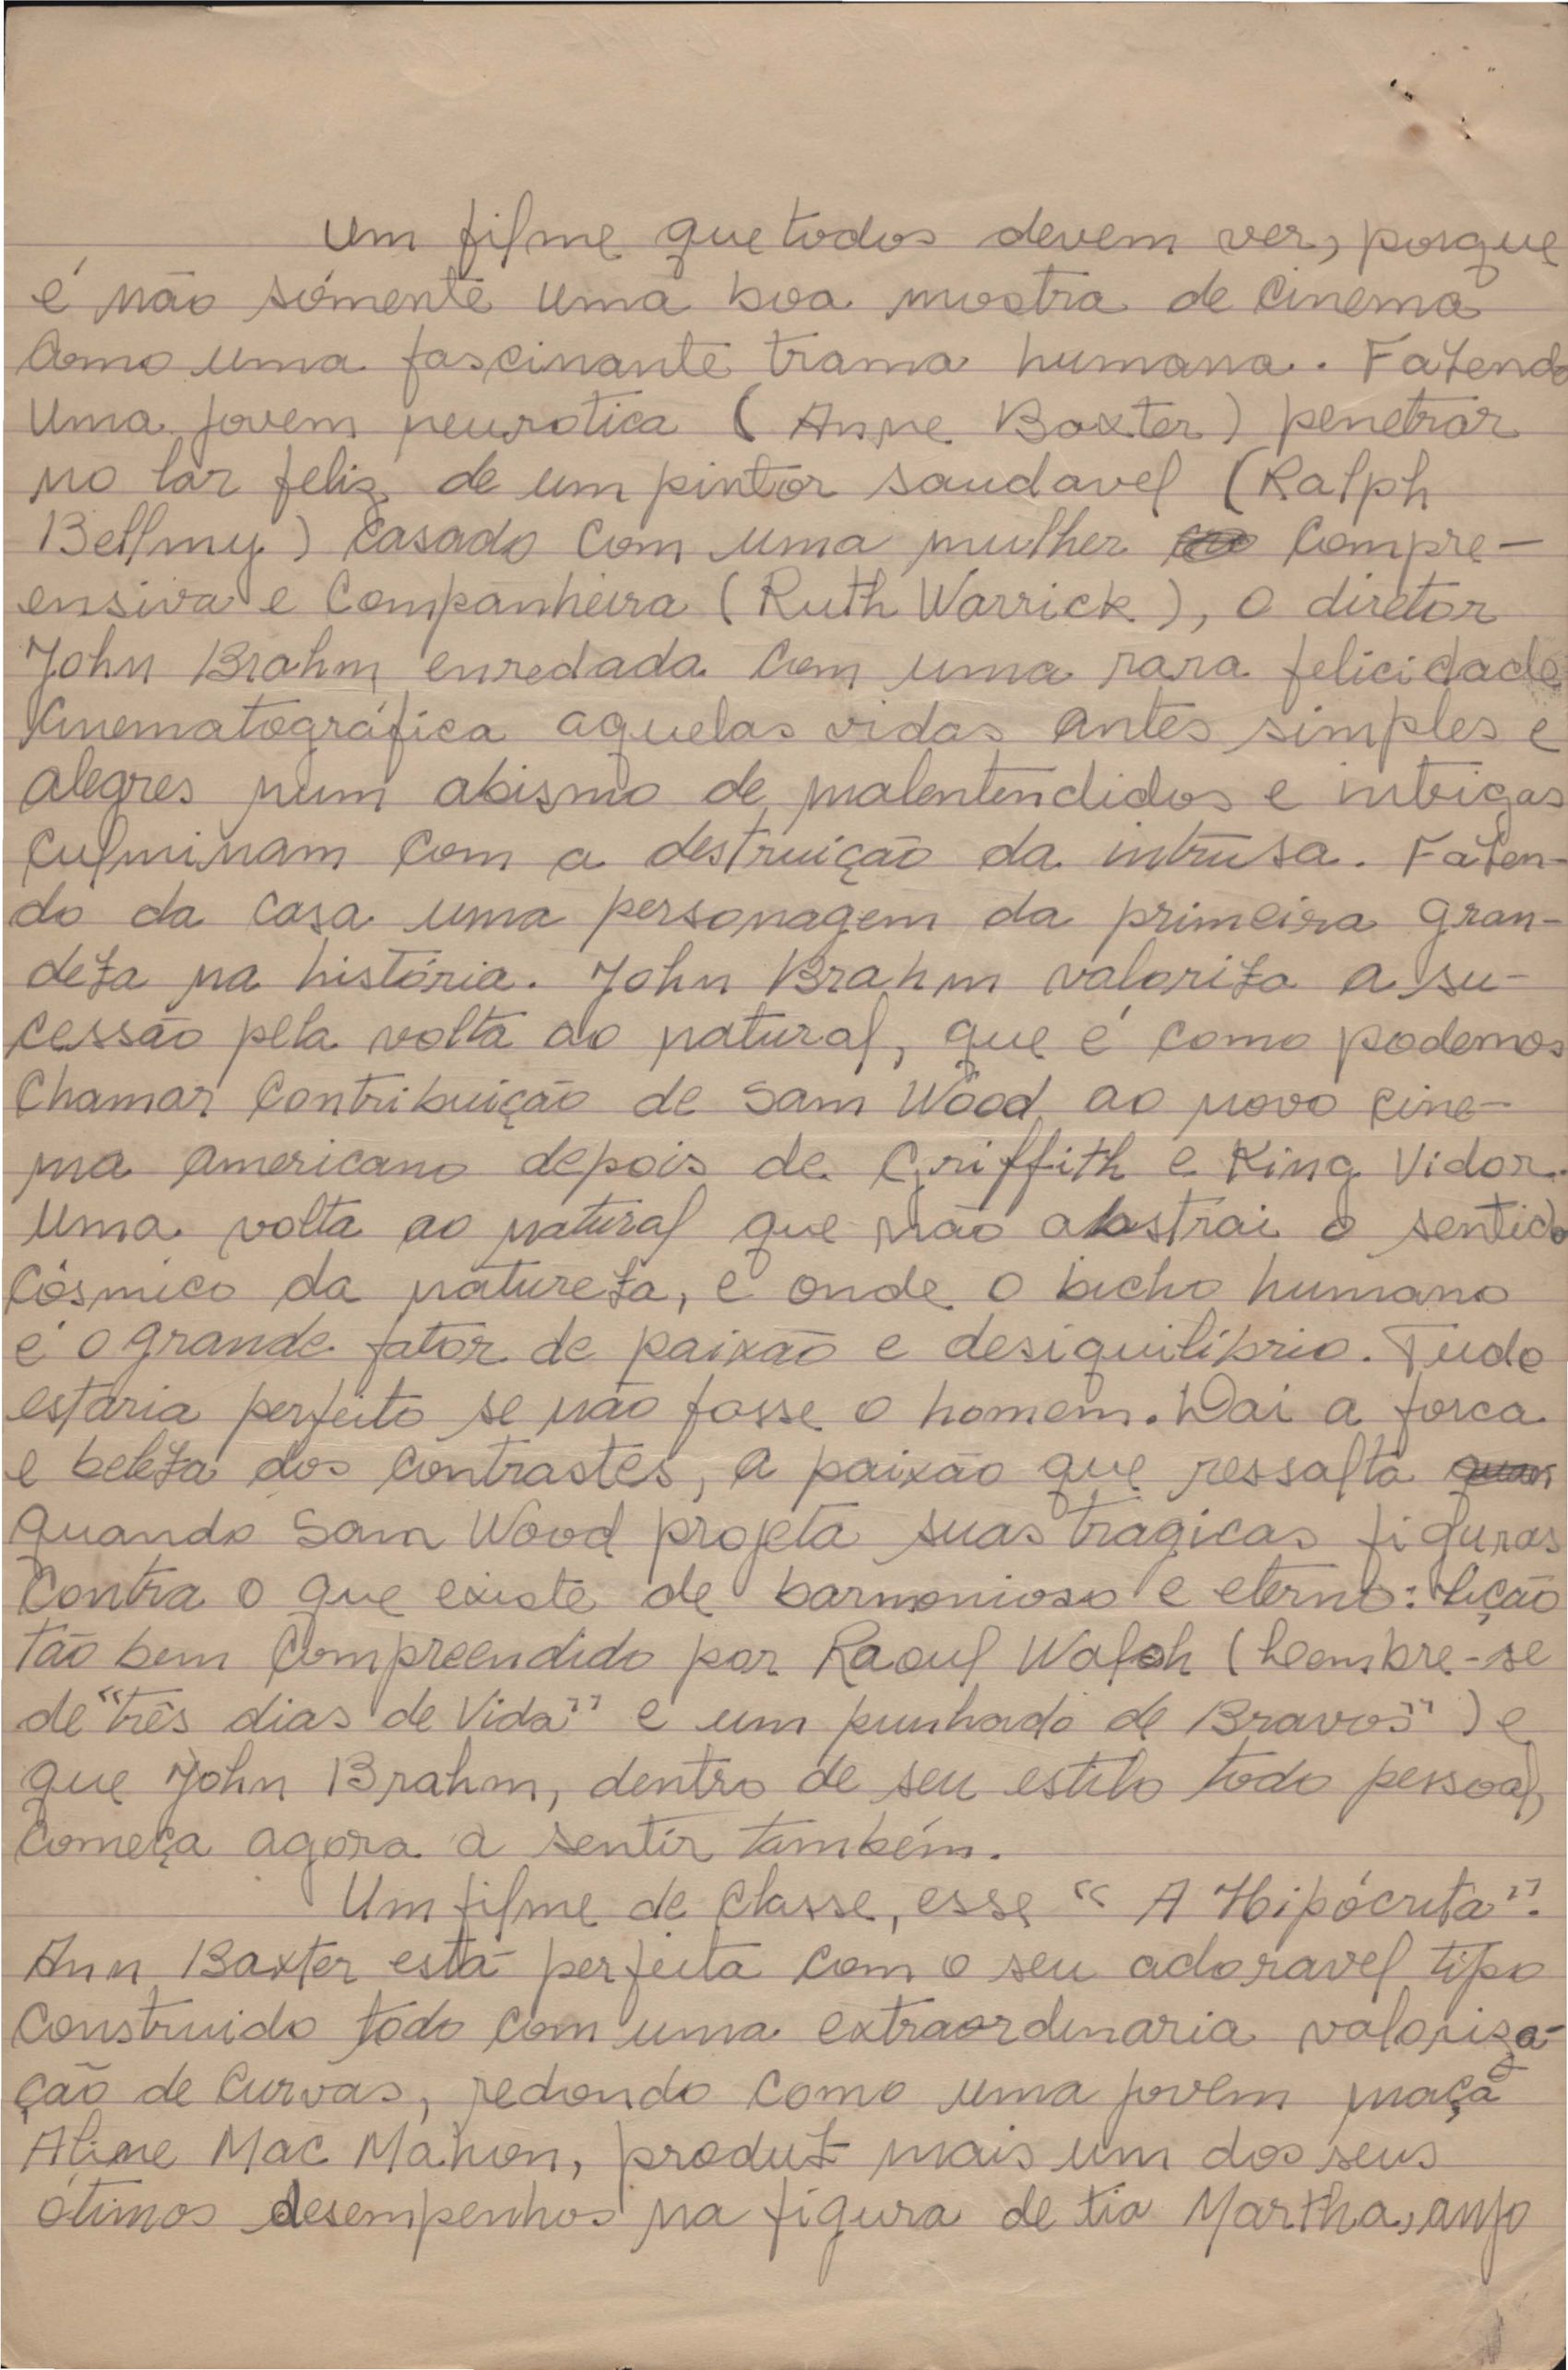 Um filme que todos devem ver, porque
é não sómente uma boa mostra de cinema
como uma fascinante trama humana. Fazendo
uma jovem neurotica ( Anne Baxter ) penetrar
no lar feliz de um pintor saudavel ( Ralph
Bellmy ) casado com uma mulher compre-
ensiva e companheira ( Ruth Warrick ), o diretor
John Brahm enredada com uma rara felicidade
cinematográfica aquelas vidas antes simples e
alegres num abismo de malentendidos e intrigas
culminam com a destruição da intrusa. Fazen-
do da casa uma personagem da primeira gran-
deza na história. John Brahm valoriza a su-
cessão pela volta ao natural, que é como podemos
chamar contribuição de Sam Wood ao novo cine-
ma americano depois de Griffith e King Vidor.
Uma volta ao natural que não abstrai o sentido
cósmico da natureza, e onde o bicho humano
é o grande fator de paixão e desiquilíbrio. Tudo
estaria perfeito se não fosse o homem. Dai a forca
e beleza dos contrastes, a paixão que ressalta
quando Sam Wood projeta suas tragicas figuras
contra o que existe de harmonioso e eterno: lição
tão bem compreendido por Raoul Walsh ( leembre-se
de "três dias de Vida" e um punhado de Bravos" ) e
que John Brahm, dentro de seu estilo todo pessoal,
começa agora a sentir também.
Um filme de classe, esse " A Hipócrita".
Ann Baxter está perfeita com o seu adoravel tipo
construido todo com uma extraordinaria valoriza-
ção de curvas, redondo como uma jovem maçã
Aline Mac Mahon, produz mais um dos seus
ótimos desempenhos na figura de tia Martha, anjo